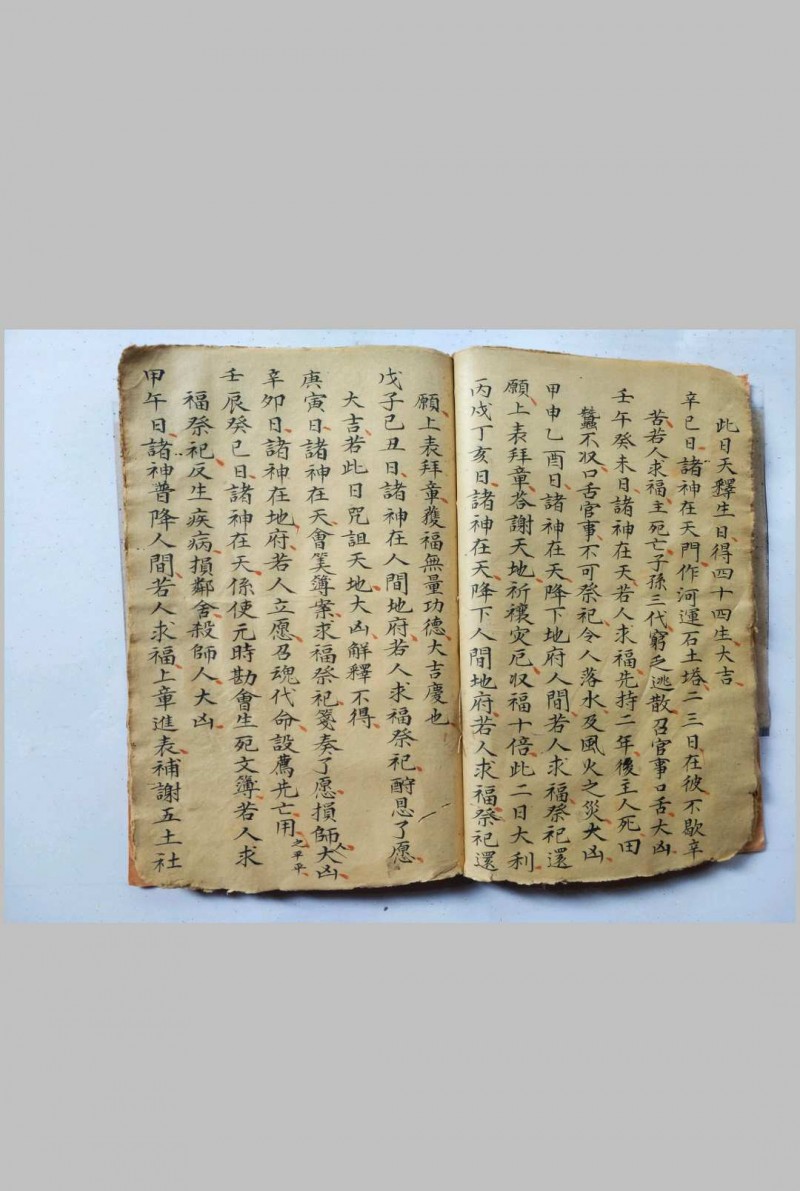 此日天釋生日得四十四生大吉
辛巳日諸神在天門作河運石土塔二三日在彼不歇辛
苦若人求福主死亡子孫三代窮乏逃散召官事口舌大凶
壬午癸未日諸神在天若人求福先持二年後主人死田
蠶不収口舌官事不可祭祀令人落水及風火之災大凶
甲申乙酉日諸神在天降下地府人間若人求福祭祀還
願上表拜章荅謝天地祈禳灾厄収福十倍此二日大利
丙戌丁亥日諸神在天降下人間地府若人求福祭祀還
願上表拜章獲福無量功德大吉慶也
戊子己丑日諸神在人間地府若人求福祭祀酧恩了愿
大吉若此日咒詛天地大凶解釋不得
庚寅日諸神在天會筭簿案求福祭祀箋奏了愿損師人大凶
辛卯日諸神在地府若人立愿召魂代命設薦先亡用之平平
壬辰癸巳日諸神在天係使元時勘會生死文簿若人求
福祭祀反生疾病損鄰舍殺師人大凶
甲午日諸神普降人間若人求福上章進表補謝五土社